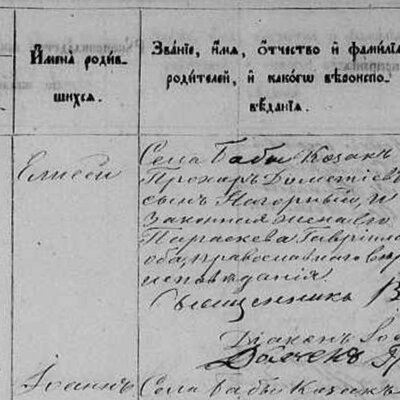 Имена родив-
шихся.
Званіе, имя, отчество и фамилія
родителей, и какого вѣроиспо-
вѣданія.
Елисей
Села Бабы Козакъ
Прохоръ Дометіев
сын Нагорный, и
Законная жена его
Параскева Гавріило
оба, православнаго вѣр
исповѣданія.
Священникъ
Діаконъ
Іоаннъ
Села Бабы Козакъ